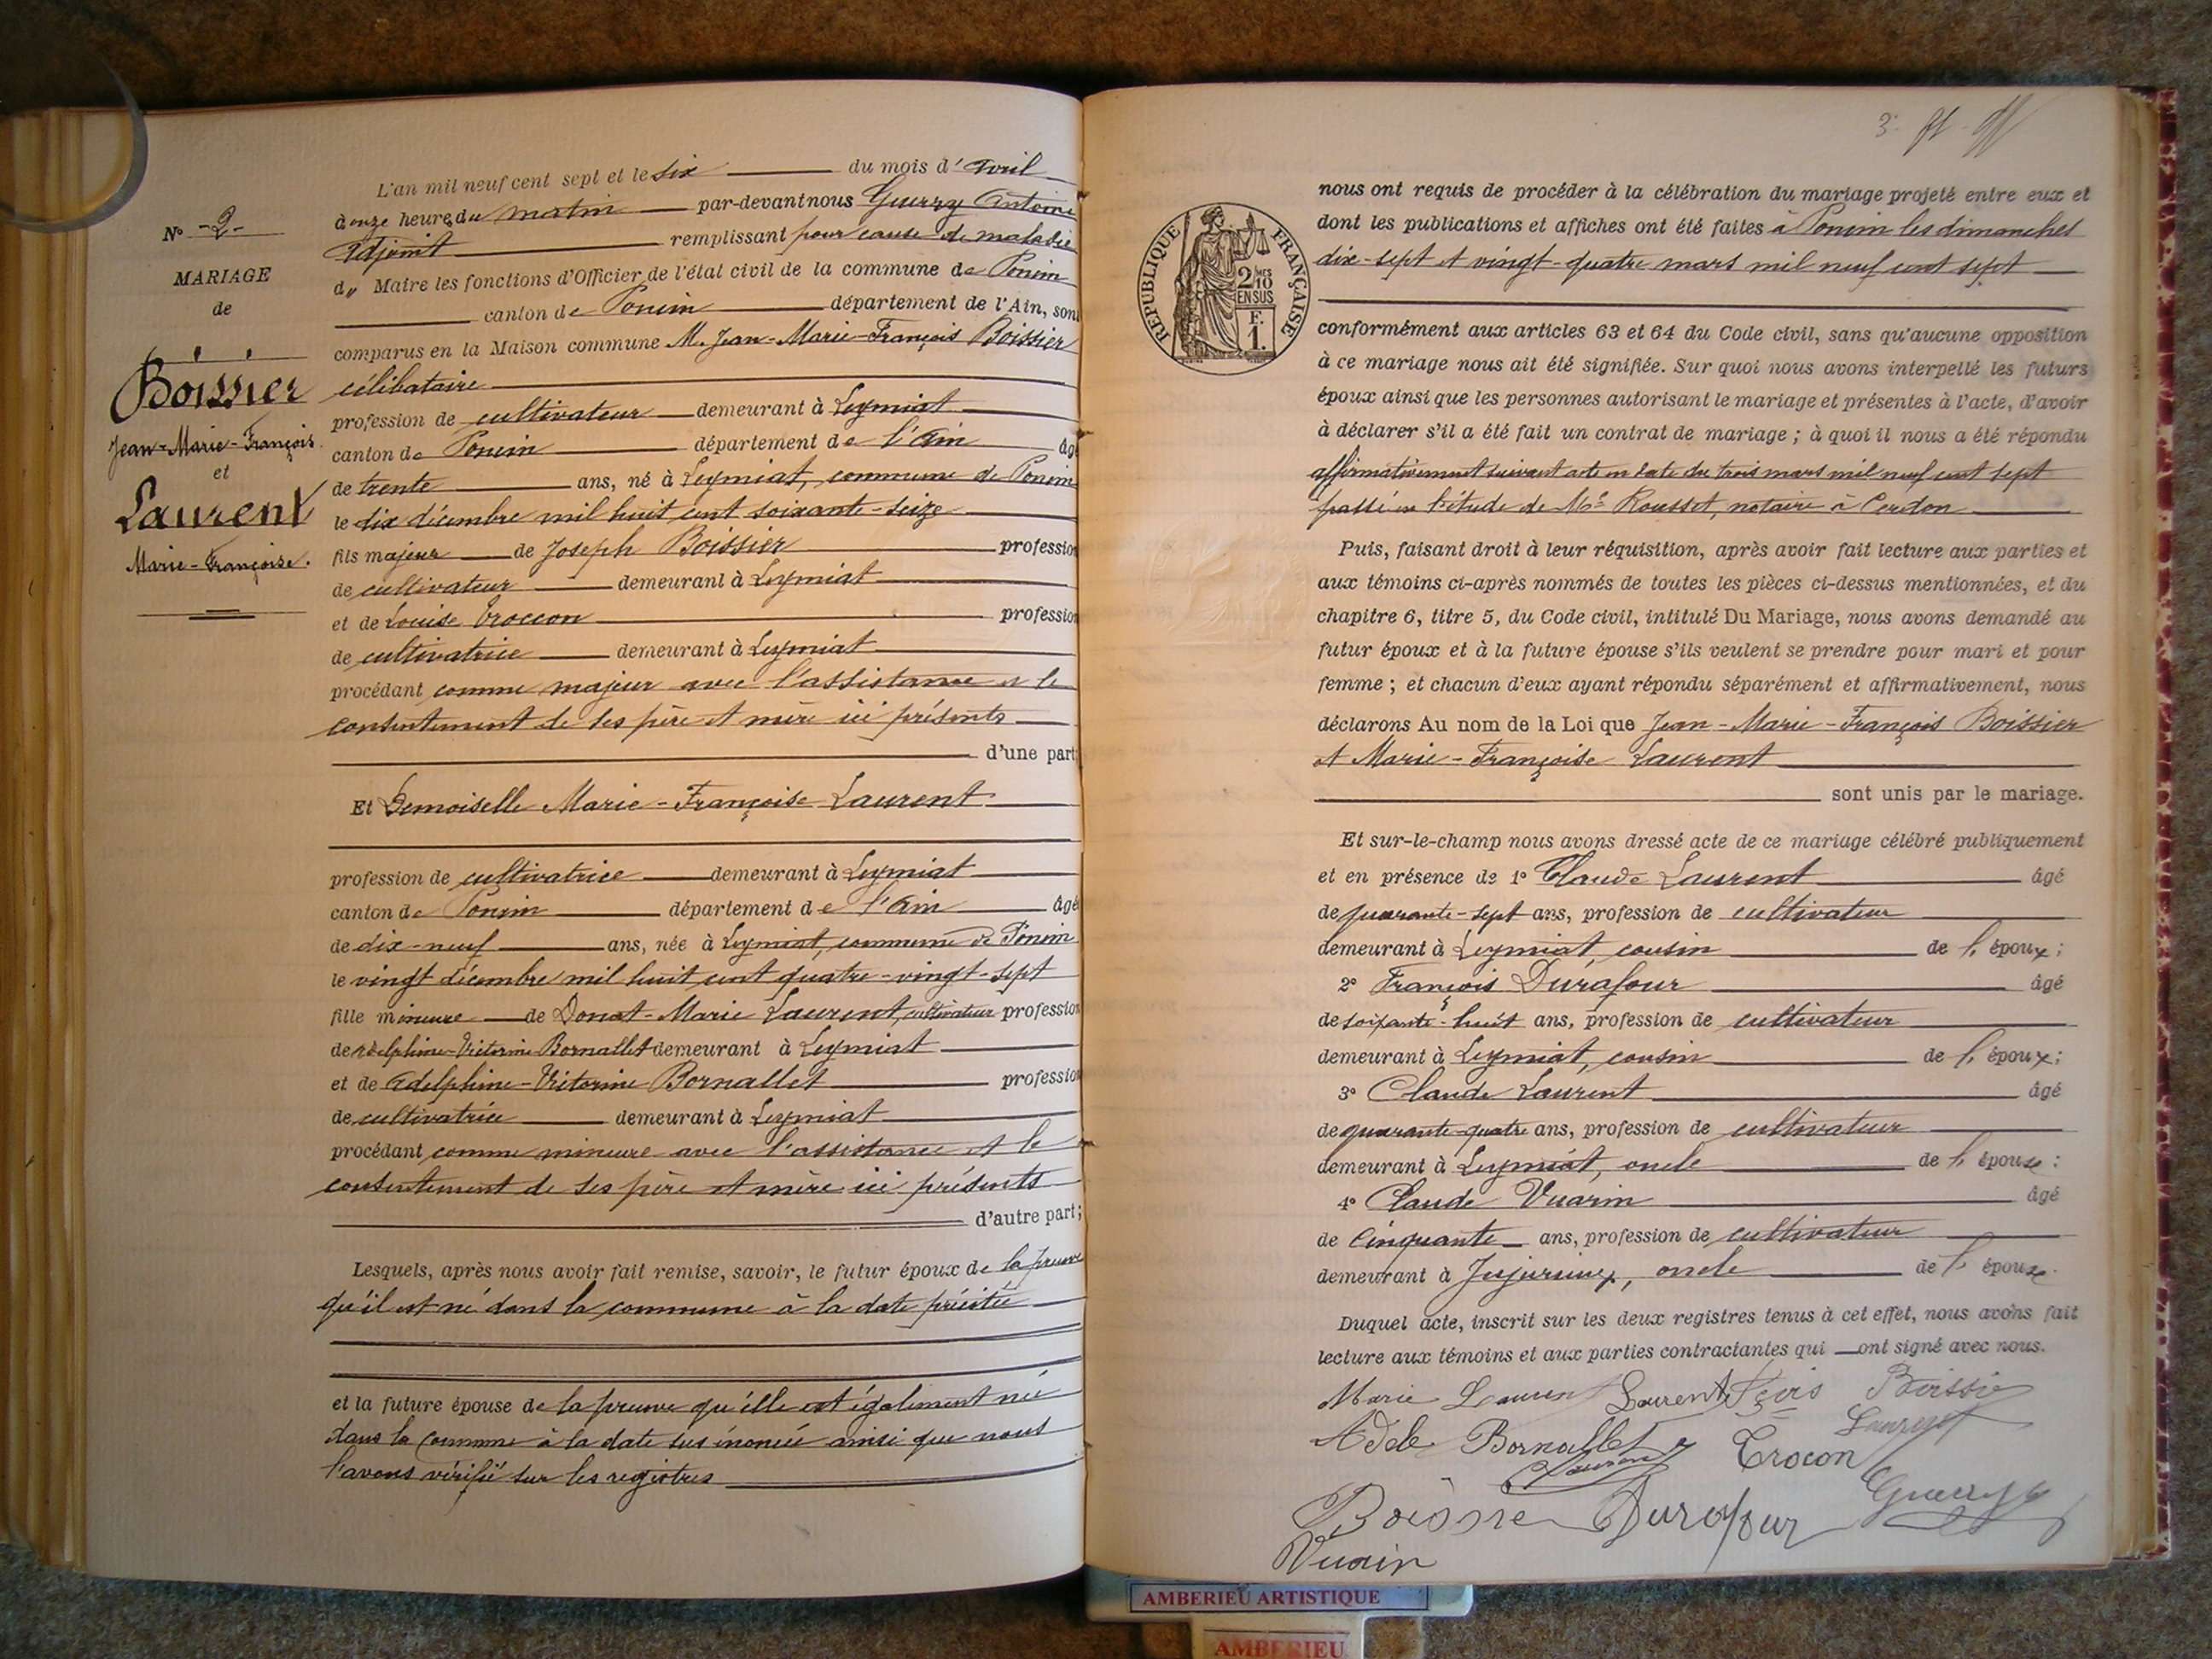 N° -2-
MARIAGE
de
Boissier
Jean-Marie-François
et
Laurent
Marie-Françoise.
L'an mil neuf cent sept et le six du mois d'avril
à onze heures du matin par-devant nous Guerry Antoine
Adjoint remplissant pour cause de maladie
du Maire les fonctions d'Officier de l'état civil de la commune de Poncin
canton de Poncin département de l'Ain, sont
comparus en la Maison commune M. Jean-Marie-François Boissier
célibataire
profession de cultivateur demeurant à Leymiat
canton de Poncin département de l'Ain âgé
de trente ans, né à Leymiat, commune de Poncin
le dix décembre mil huit cent soixante-seize
fils majeur de Joseph Boissier profession
de cultivateur demeurant à Leymiat
et de Louise Troccon profession
de cultivatrice demeurant à Leymiat
procédant comme majeur avec l'assistance et le
consentement de ses père et mère ici présents
d'une part;
Et Demoiselle Marie-Françoise Laurent
profession de cultivatrice demeurant à Leymiat
canton de Poncin département de l'Ain âgée
de dix-neuf ans, née à Leymiat, commune de Poncin
le vingt décembre mil huit cent quatre-vingt-sept
fille mineure de Donat-Marie Laurent, cultivateur profession
de Adelphine-Victorine Bornallet demeurant à Leymiat
et de Adelphine-Victorine Bornallet profession
de cultivatrice demeurant à Leymiat
procédant comme mineure avec l'assistance et le
consentement de ses père et mère ici présents
d'autre part;
Lesquels, après nous avoir fait remise, savoir, le futur époux de la preuve
qu'il est né dans la commune à la date précitée
et la future épouse de la preuve qu'elle est également née
dans la commune à la date sus énoncée ainsi que nous
l'avons vérifié sur les registres
RÉPUBLIQUE FRANÇAISE
2/10 EN SUS
F.
1.
nous ont requis de procéder à la célébration du mariage projeté entre eux et
dont les publications et affiches ont été faites à Poncin les dimanches
dix-sept et vingt-quatre mars mil neuf cent sept
conformément aux articles 63 et 64 du Code civil, sans qu'aucune opposition
à ce mariage nous ait été signifiée. Sur quoi nous avons interpellé les futurs
époux ainsi que les personnes autorisant le mariage et présentes à l'acte, d'avoir
à déclarer s'il a été fait un contrat de mariage ; à quoi il nous a été répondu
affirmativement suivant acte en date du trois mars mil neuf cent sept
passé en l'étude de Me Rousset, notaire à Cerdon
Puis, faisant droit à leur réquisition, après avoir fait lecture aux parties et
aux témoins ci-après nommés de toutes les pièces ci-dessus mentionnées, et du
chapitre 6, titre 5, du Code civil, intitulé Du Mariage, nous avons demandé au
futur époux et à la future épouse s'ils veulent se prendre pour mari et pour
femme ; et chacun d'eux ayant répondu séparément et affirmativement, nous
déclarons Au nom de la Loi que Jean-Marie-François Boissier
et Marie-Françoise Laurent
sont unis par le mariage.
Et sur-le-champ nous avons dressé acte de ce mariage célébré publiquement
et en présence de 1° Claude Laurent âgé
de quarante-sept ans, profession de cultivateur
demeurant à Leymiat, cousin de l'époux;
2° François Durafour âgé
de soixante-huit ans, profession de cultivateur
demeurant à Leymiat, cousin de l'époux;
3° Claude Laurent âgé
de quarante-quatre ans, profession de cultivateur
demeurant à Leymiat, oncle de l'épouse;
4° Claude Vuarin âgé
de Cinquante ans, profession de cultivateur
demeurant à Jujurieux, oncle de l'épouse.
Duquel acte, inscrit sur les deux registres tenus à cet effet, nous avons fait
lecture aux témoins et aux parties contractantes qui ont signé avec nous.
Marie Laurent Laurent Boissier
Adele Bornallet Trocon Laurent
Laurent
Boissie Durafour Guerry
Vuarin
AMBERIEU ARTISTIQUE
AMBERIEU